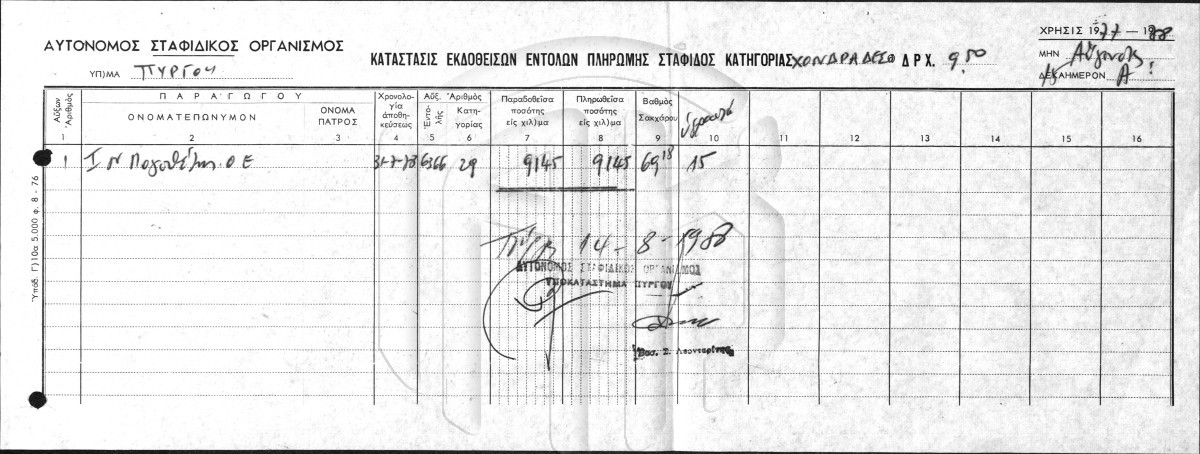 ΑΥΤΟΝΟΜΟΣ ΣΤΑΦΙΔΙΚΟΣ ΟΡΓΑΝΙΣΜΟΣ
ΥΠ)ΜΑ ΠΥΡΓΟΥ
ΚΑΤΑΣΤΑΣΙΣ ΕΚΔΟΘΕΙΣΩΝ ΕΝΤΟΛΩΝ ΠΛΗΡΩΜΗΣ ΣΤΑΦΙΔΟΣ ΚΑΤΗΓΟΡΙΑΣ ΧΟΝΔΡΑΔΕΣ ΔΡΧ. 950
ΧΡΗΣΙΣ 1977 - 1988
ΜΗΝ Αὔγουστος
ΔΕΚΑΗΜΕΡΟΝ Α!
Αὔξων Ἀριθμός
ΠΑΡΑΓΩΓΟΥ
ΟΝΟΜΑΤΕΠΩΝΥΜΟΝ
ΟΝΟΜΑ ΠΑΤΡΟΣ
Χρονολογία ἀποθηκεύσεως
Αὔξ. Ἀριθμὸς
Ἐντολῆς
Κατηγορίας
Παραδοθεῖσα ποσότης εἰς χιλ)μα
Πληρωθεῖσα ποσότης εἰς χιλ)μα
Βαθμὸς Σακχάρου
1 2 3 4 5 6 7 8 9 10 11 12 13 14 15 16
1 Ι. Ν. Ο.Ε 31-7-78 6366 29 9145 9145 69 18 15
14 - 8 - 1988
ΑΥΤΟΝΟΜΟΣ ΣΤΑΦΙΔΙΚΟΣ ΟΡΓΑΝΙΣΜΟΣ
ΥΠΟΚΑΤΑΣΤΗΜΑ ΠΥΡΓΟΥ
Βασ. Σ. Λεονταρίτης
Ὑπόδ. Γ)10α 5.000 φ. 8 - 76